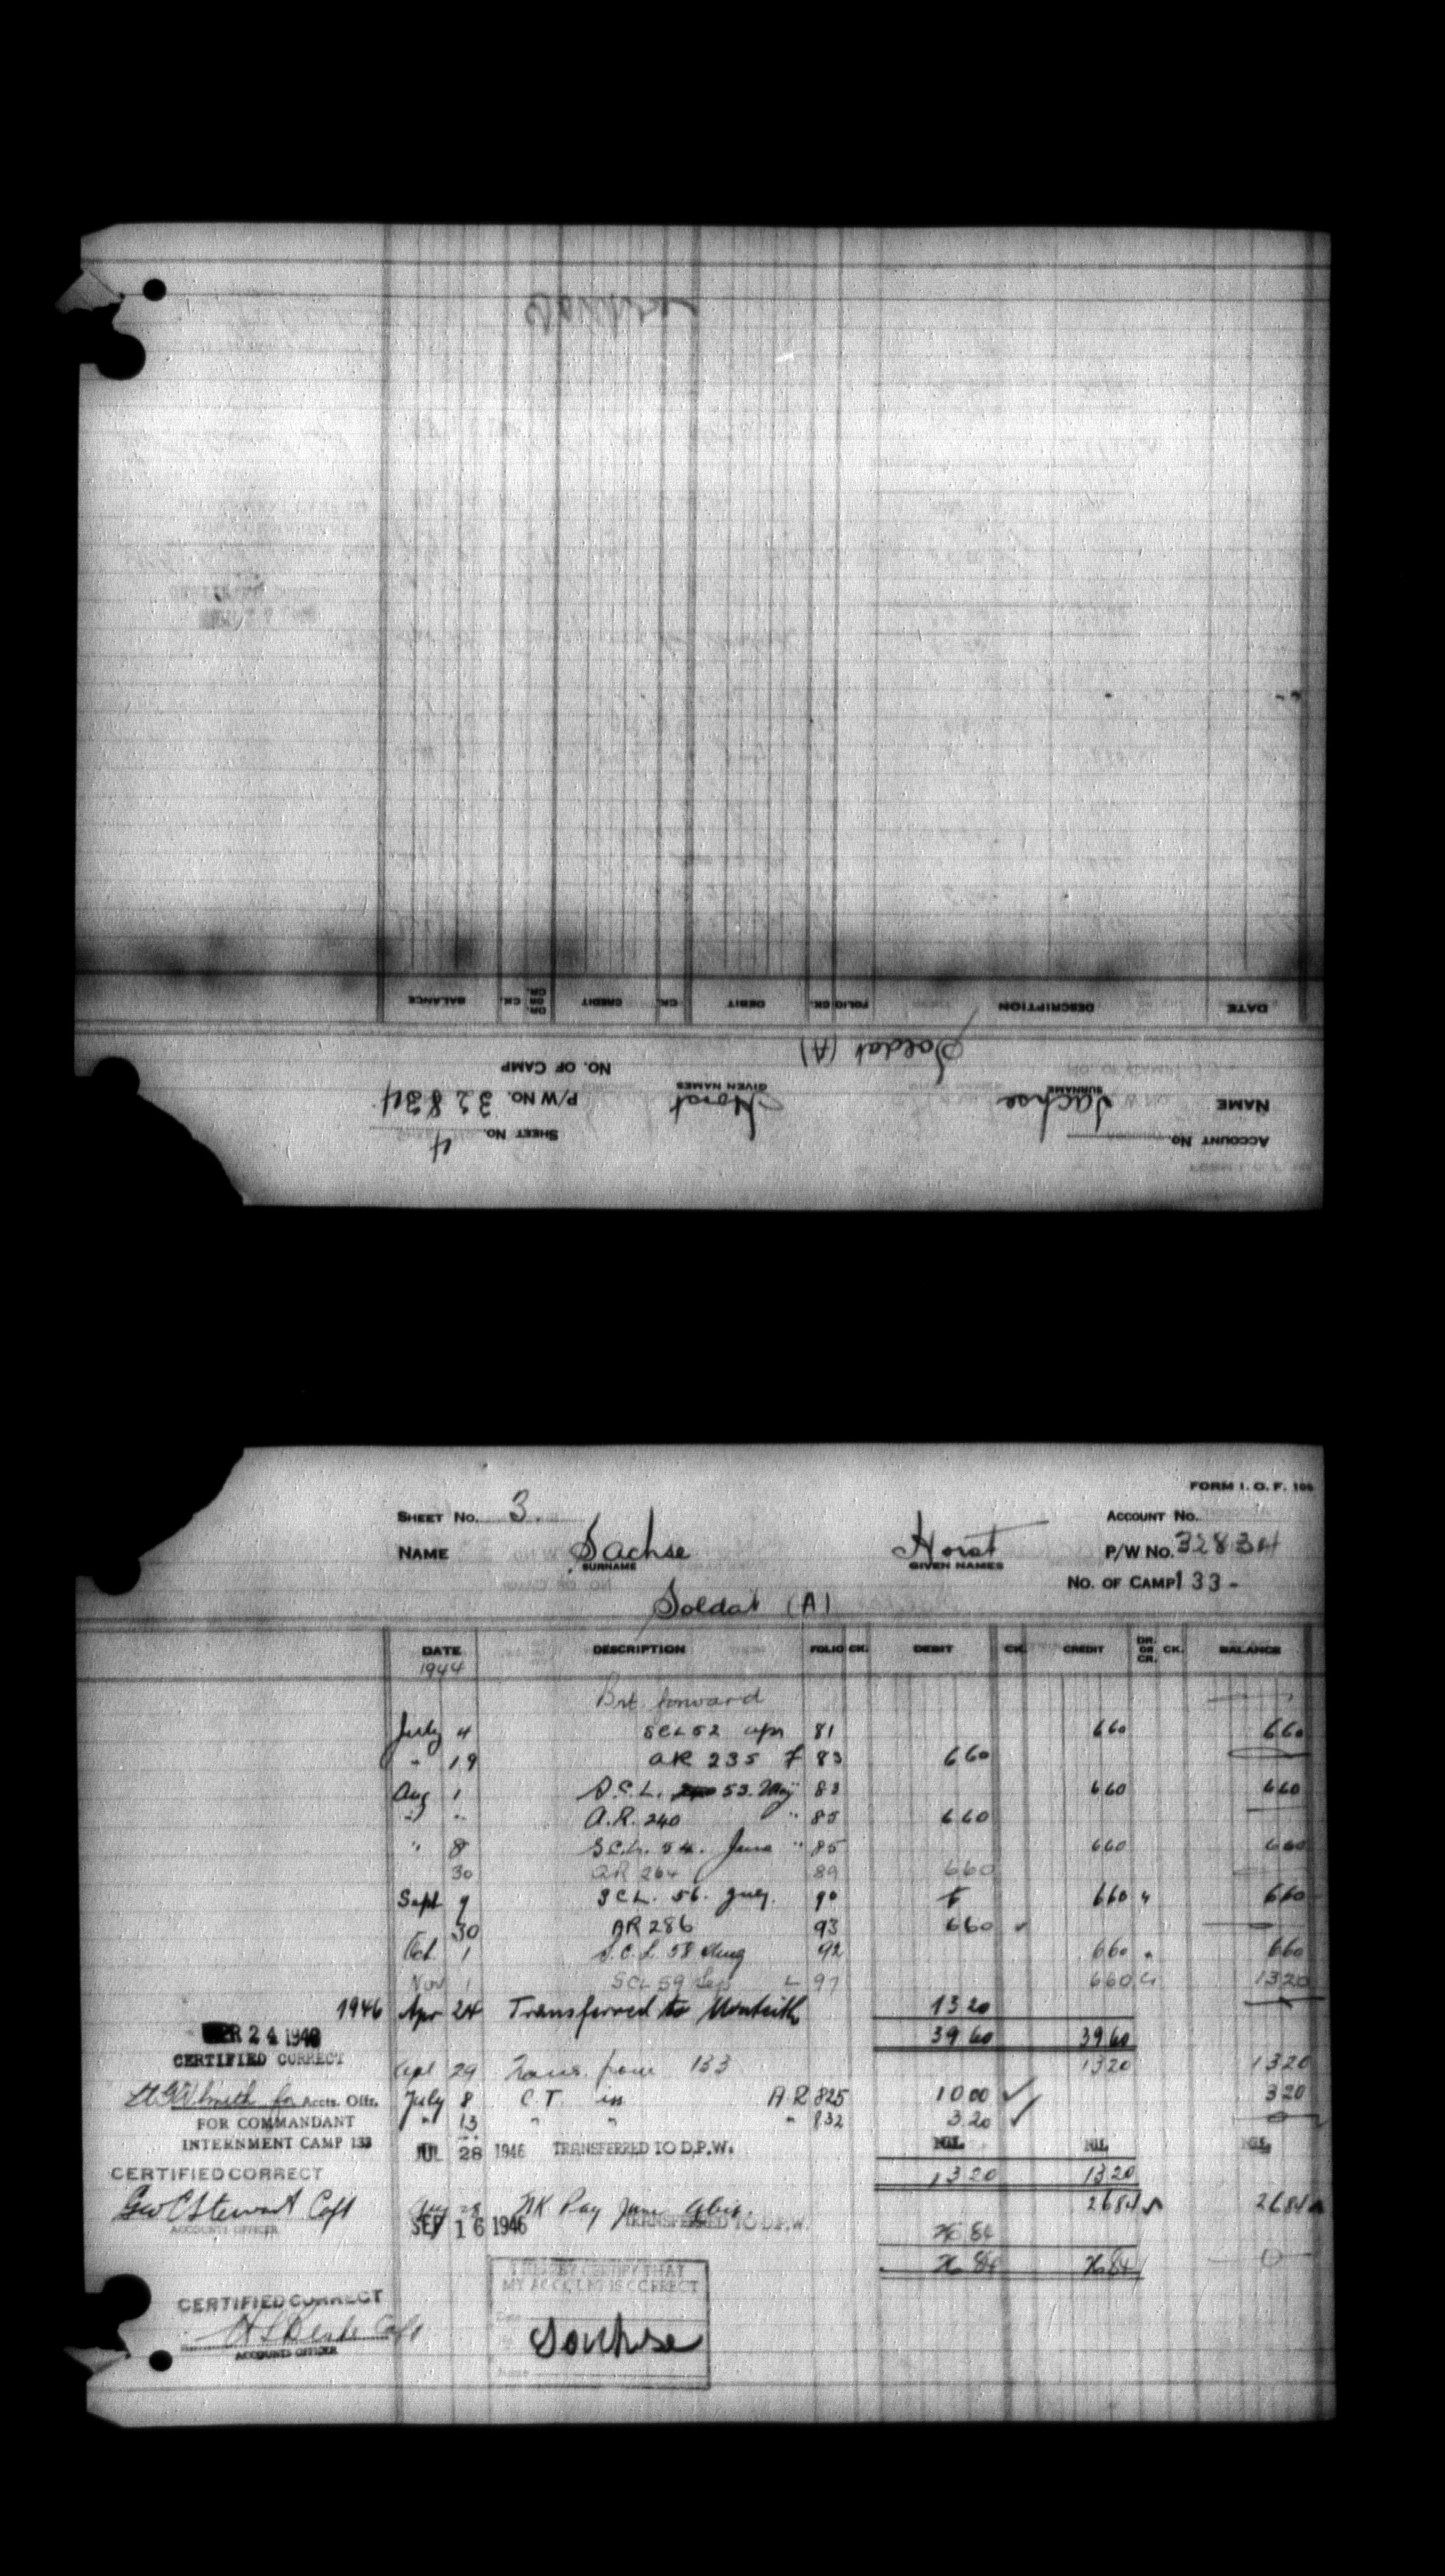 ACCOUNT No.
SHEET No. 4
NAME Sachse Horst P/W No. 32834
SURNAME GIVEN NAMES
NO. OF CAMP
Soldat (A)
DATE DESCRIPTION FOLIO CK. DEBIT CK. CREDIT DR. OR CR. CK. BALANCE
FORM I. O. F. 106
SHEET No. 3. ACCOUNT No.
NAME Sachse Horst P/W No. 32834
SURNAME GIVEN NAMES
NO. OF CAMP 133-
Soldat (A)
DATE DESCRIPTION FOLIO CK. DEBIT CK. CREDIT DR. OR CR. CK. BALANCE
1944
Brt. forward
July 4 SCL 52 apr 81 660 660
" 19 AR 235 83 660
Aug 1 S.C.L. 53. May " 83 660 660
" " A.R. 240 " 85 660
" 8 S.C.L. 54. June " 85 660 660
30 AR 264 89 660
Sept 9 SCL. 56. July. 90 660 660
30 AR 286 93 660
Oct 1 S.C.L 58 Aug 92 660 660
Nov 1 SCL 59 Sep 97 660 1320
1946 Apr 24 Transferred to Monteith 1320
APR 24 1946 3960 3960
CERTIFIED CORRECT
Apl 29 Trans. from 133 1320 1320
Accts. Offr. July 8 C.T. in A R 825 1000 320
FOR COMMANDANT " 13 " " " 832 3.20
INTERNMENT CAMP 133 JUL 28 1946 TRANSFERRED TO D.P.W. NIL NIL NIL
CERTIFIED CORRECT 1320 1320
Geo C Stewart Capt Aug 28 Pay June 2684 2684
ACCOUNTS OFFICER SEP 16 1946 TRANSFERRED TO D.P.W. 26 84
26 84 26 84 0
I HEREBY CERTIFY THAT
MY ACCOUNT IS CORRECT
CERTIFIED CORRECT
Sachse
ACCOUNTS OFFICER